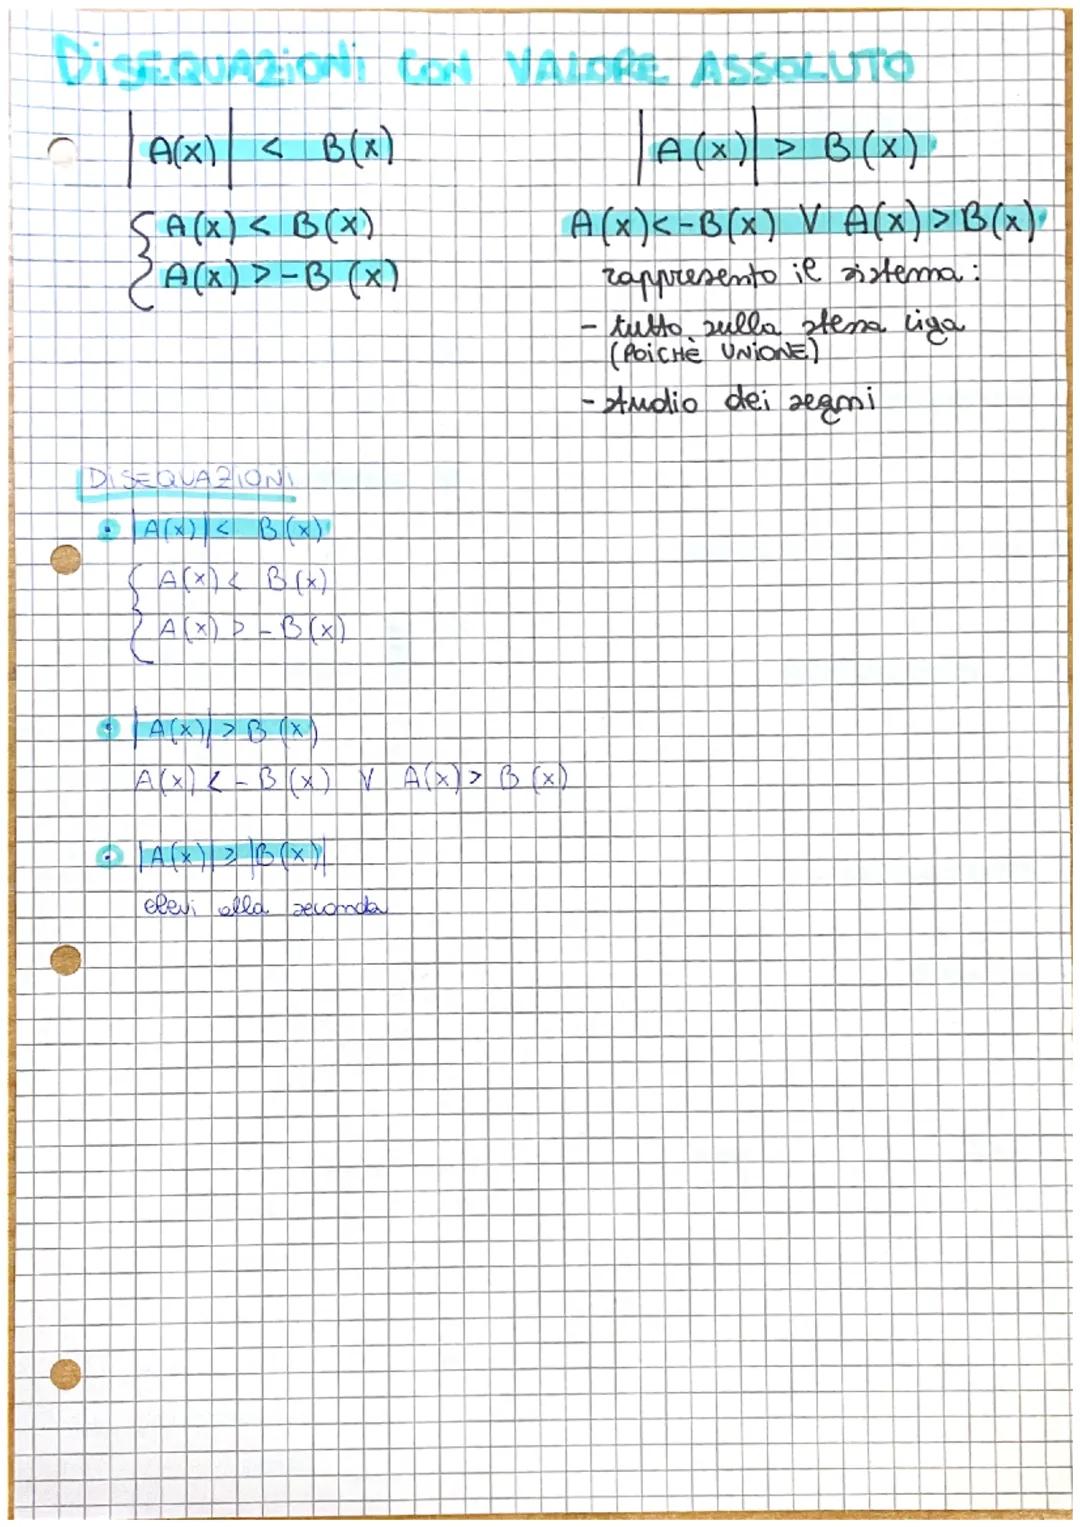 DISEQUAZIONI CON VALORE ASSOLUTO
|A(x)| < B(x)
{ A(x) < B(x)
A(x) > -B(x)
|A(x)| > B(x)
A(x) < -B(x) V A(x) > B(x)
rappresento il sistema:
- tutto sulla stessa riga
(POICHÈ UNIONE)
- studio dei segni
DISEQUAZIONI
• |A(x)| < B(x)
{ A(x) < B(x)
A(x) > -B(x)
• |A(x)| > B(x)
A(x) < -B(x) V A(x) > B(x)
• |A(x)| ≥ |B(x)|
elevi alla seconda